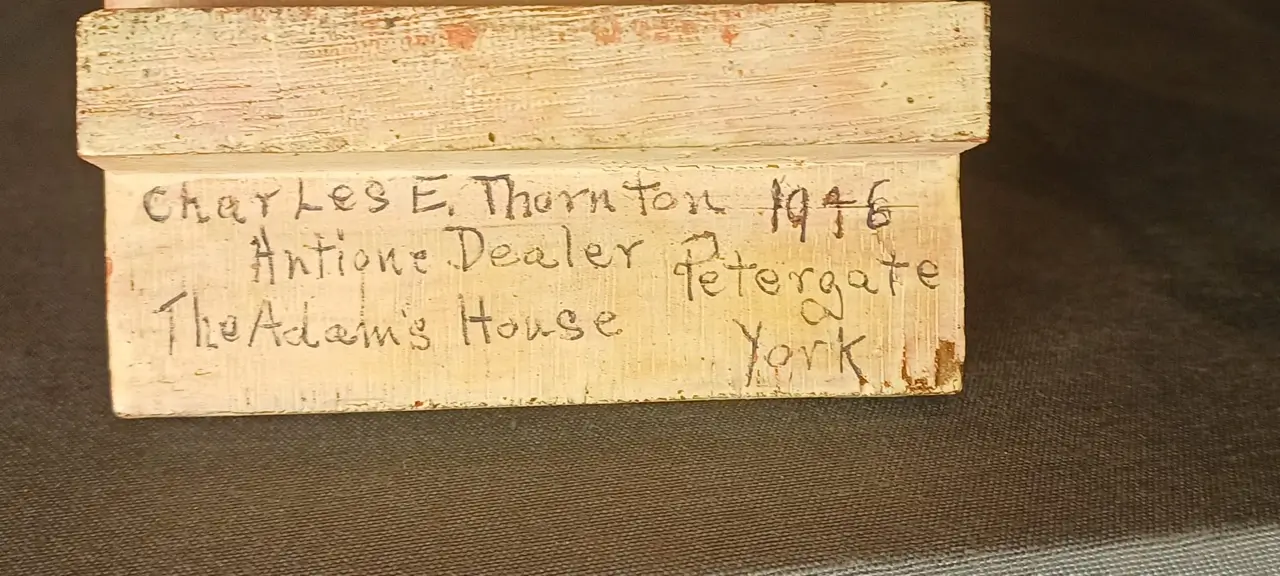 CharLes E. Thornton 1946
Antique Dealer Petergate
The Adam's House York